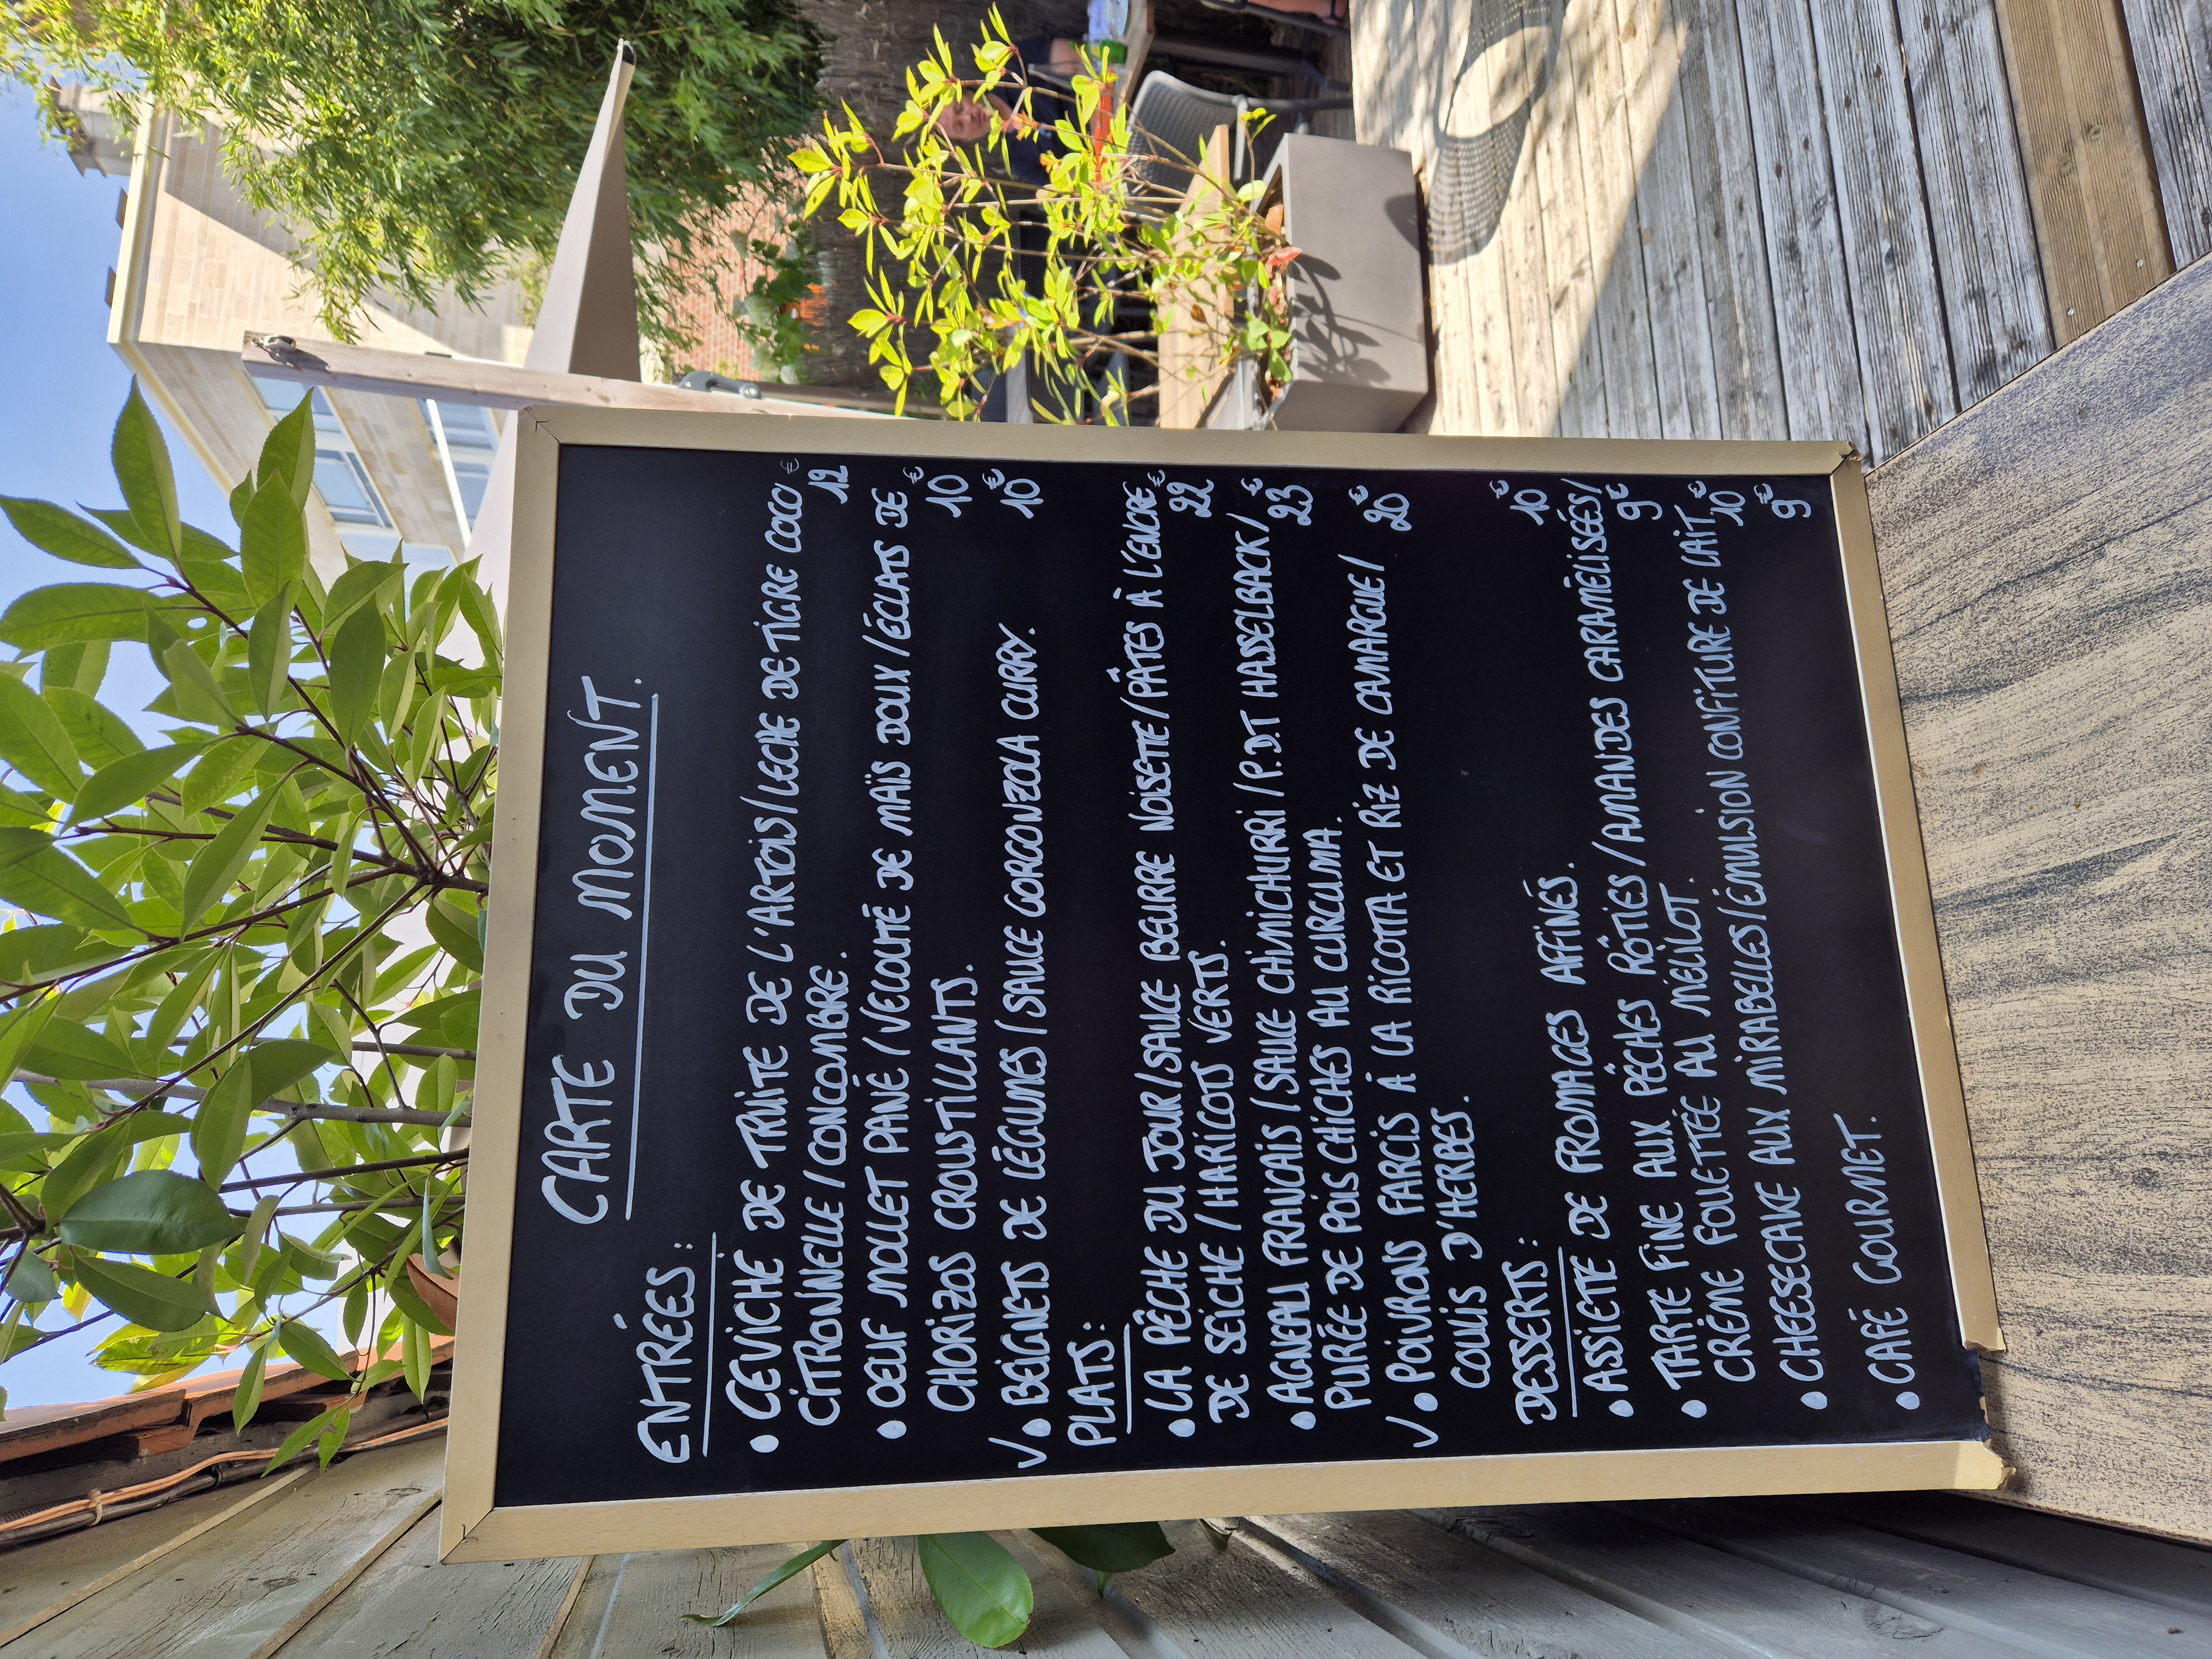 CARTE DU MOMENT.
ENTRÉES :
• CEVICHE DE TRUITE DE L'ARTOIS/LECHE DE TIGRE COCO
CITRONNELLE/CONCOMBRE. 12€
• OEUF MOLLET PANÉ/VELOUTÉ DE MAÏS DOUX/ÉCLATS DE
CHORIZOS CROUSTILLANTS. 10€
V • BEIGNETS DE LÉGUMES/SAUCE GORGONZOLA CURRY. 10€
PLATS :
• LA PÊCHE DU JOUR/SAUCE BEURRE NOISETTE/PÂTES À L'ENCRE
DE SEICHE/HARICOTS VERTS. 22€
• AGNEAU FRANCAIS/SAUCE CHIMICHURRI/P.D.T HASSELBACK/
PURÉE DE POIS CHICHES AU CURCUMA. 23€
V • POIVRONS FARCIS À LA RICOTTA ET RIZ DE CAMARGUE/
COULIS D'HERBES. 20€
DESSERTS :
• ASSIETTE DE FROMAGES AFFINÉS. 10€
• TARTE FINE AUX PÊCHES RÔTIES/AMANDES CARAMÉLISÉES/
CRÈME FOUETTÉE AU MÉLILOT. 9€
• CHEESECAKE AUX MIRABELLES/ÉMULSION CONFITURE DE LAIT 10€
• CAFÉ GOURMET. 9€